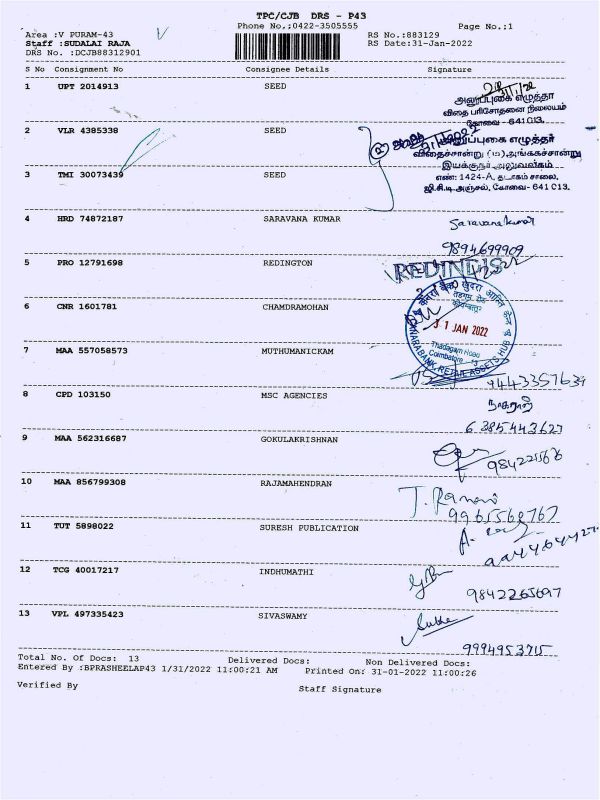 TPC/CJB DRS - P43
Phone No.;0422-3505555
Page No.;1
Area :V PURAM-43
Staff :SUDALAI RAJA
DRS No. :DCJB88312901
RS No.:883129
RS Date:31-Jan-2022
S No Consignment No Consignee Details Signature
1 UPT 2014913 SEED
அலுப்புகை எழுத்தா
விதை பரிசோதனை நிலையம்
கோவை - 641 013.
2 VLR 4385338 SEED
எழுத்தர்
விதைச்சான்று (ம) அங்ககச்சான்று
3 TMI 30073439 SEED
இயக்குநர் அலுவலகம்
எண்: 1424-A, தடாகம் சாலை,
ஜி.சி.டி அஞ்சல், கோவை - 641 013.
4 HRD 74872187 SARAVANA KUMAR
Saravanakumar
9894699909
5 PRO 12791698 REDINGTON
6 CNR 1601781 CHAMDRAMOHAN
31 JAN 2022
Thadagam Road
Coimbatore
CANARA BANK RETAIL ASSETS HUB
7 MAA 557058573 MUTHUMANICKAM
8 CPD 103150 MSC AGENCIES
நாகராஜ்
6385443627
9 MAA 562316687 GOKULAKRISHNAN
10 MAA 856799308 RAJAMAHENDRAN
9965568767
11 TUT 5898022 SURESH PUBLICATION
12 TCG 40017217 INDHUMATHI
9842265697
13 VPL 497335423 SIVASWAMY
9994953715
Total No. Of Docs: 13 Delivered Docs: Non Delivered Docs:
Entered By :BPRASHEELAP43 1/31/2022 11:00:21 AM Printed On: 31-01-2022 11:00:26
Verified By Staff Signature